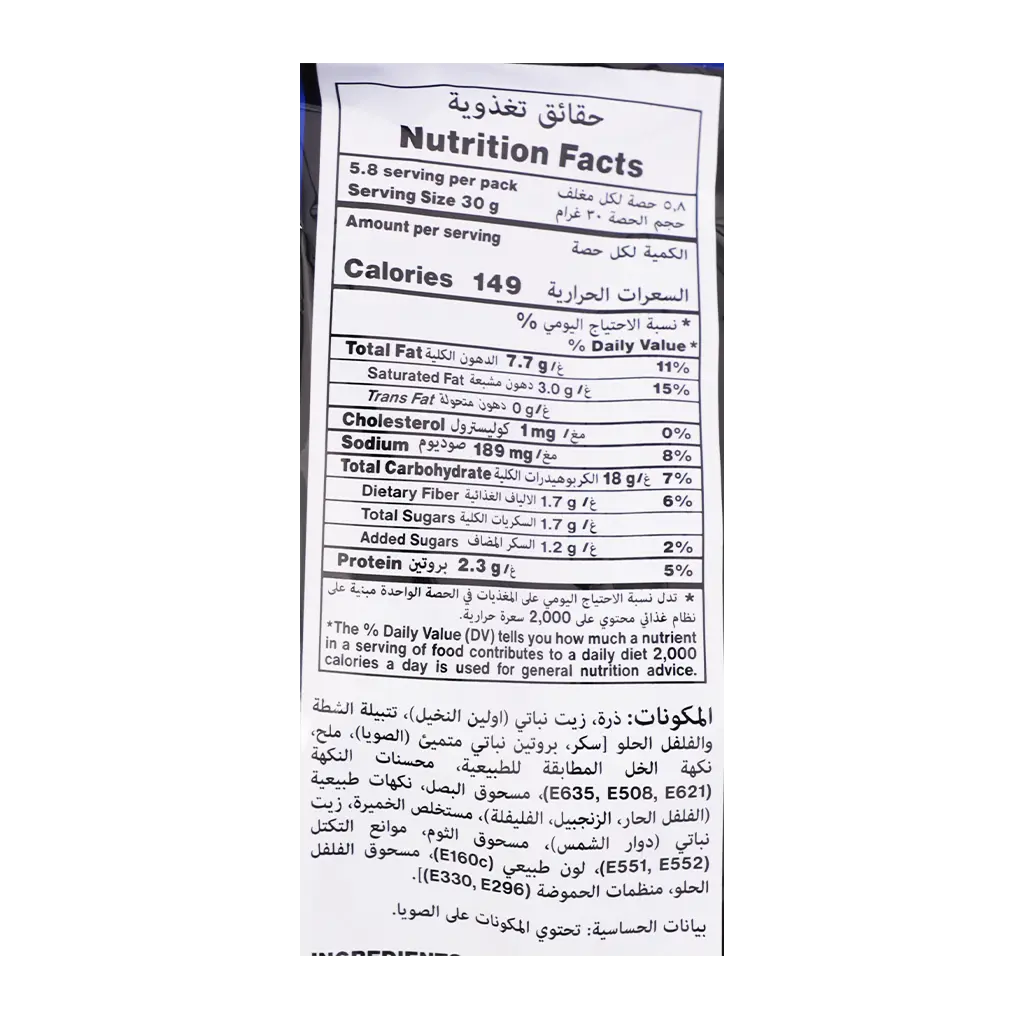 حقائق تغذوية
Nutrition Facts
5.8 serving per pack ٥,٨ حصة لكل مغلف
Serving Size 30 g حجم الحصة ٣٠ غرام
Amount per serving الكمية لكل حصة
Calories 149 السعرات الحرارية
* نسبة الاحتياج اليومي %
% Daily Value *
Total Fat الدهون الكلية 7.7 g/غ 11%
Saturated Fat دهون مشبعة 3.0 g/غ 15%
Trans Fat دهون متحولة 0 g/غ
Cholesterol كوليسترول 1mg /مغ 0%
Sodium صوديوم 189 mg/مغ 8%
Total Carbohydrate الكربوهيدرات الكلية 18 g/غ 7%
Dietary Fiber الالياف الغذائية 1.7 g /غ 6%
Total Sugars السكريات الكلية 1.7 g /غ
Added Sugars السكر المضاف 1.2 g /غ 2%
Protein بروتين 2.3 g/غ 5%
* تدل نسبة الاحتياج اليومي على المغذيات في الحصة الواحدة مبنية على
نظام غذائي محتوي على 2,000 سعرة حرارية.
*The % Daily Value (DV) tells you how much a nutrient
in a serving of food contributes to a daily diet 2,000
calories a day is used for general nutrition advice.
المكونات: ذرة، زيت نباتي (اولين النخيل)، تتبيلة الشطة
والفلفل الحلو [سكر، بروتين نباتي متميئ (الصويا)، ملح،
نكهة الخل المطابقة للطبيعية، محسنات النكهة
(E635, E508, E621)، مسحوق البصل، نكهات طبيعية
(الفلفل الحار، الزنجبيل، الفليفلة)، مستخلص الخميرة، زيت
نباتي (دوار الشمس)، مسحوق الثوم، موانع التكتل
(E551, E552)، لون طبيعي (E160c)، مسحوق الفلفل
الحلو، منظمات الحموضة (E330, E296)].
بيانات الحساسية: تحتوي المكونات على الصويا.
INGREDIENTS